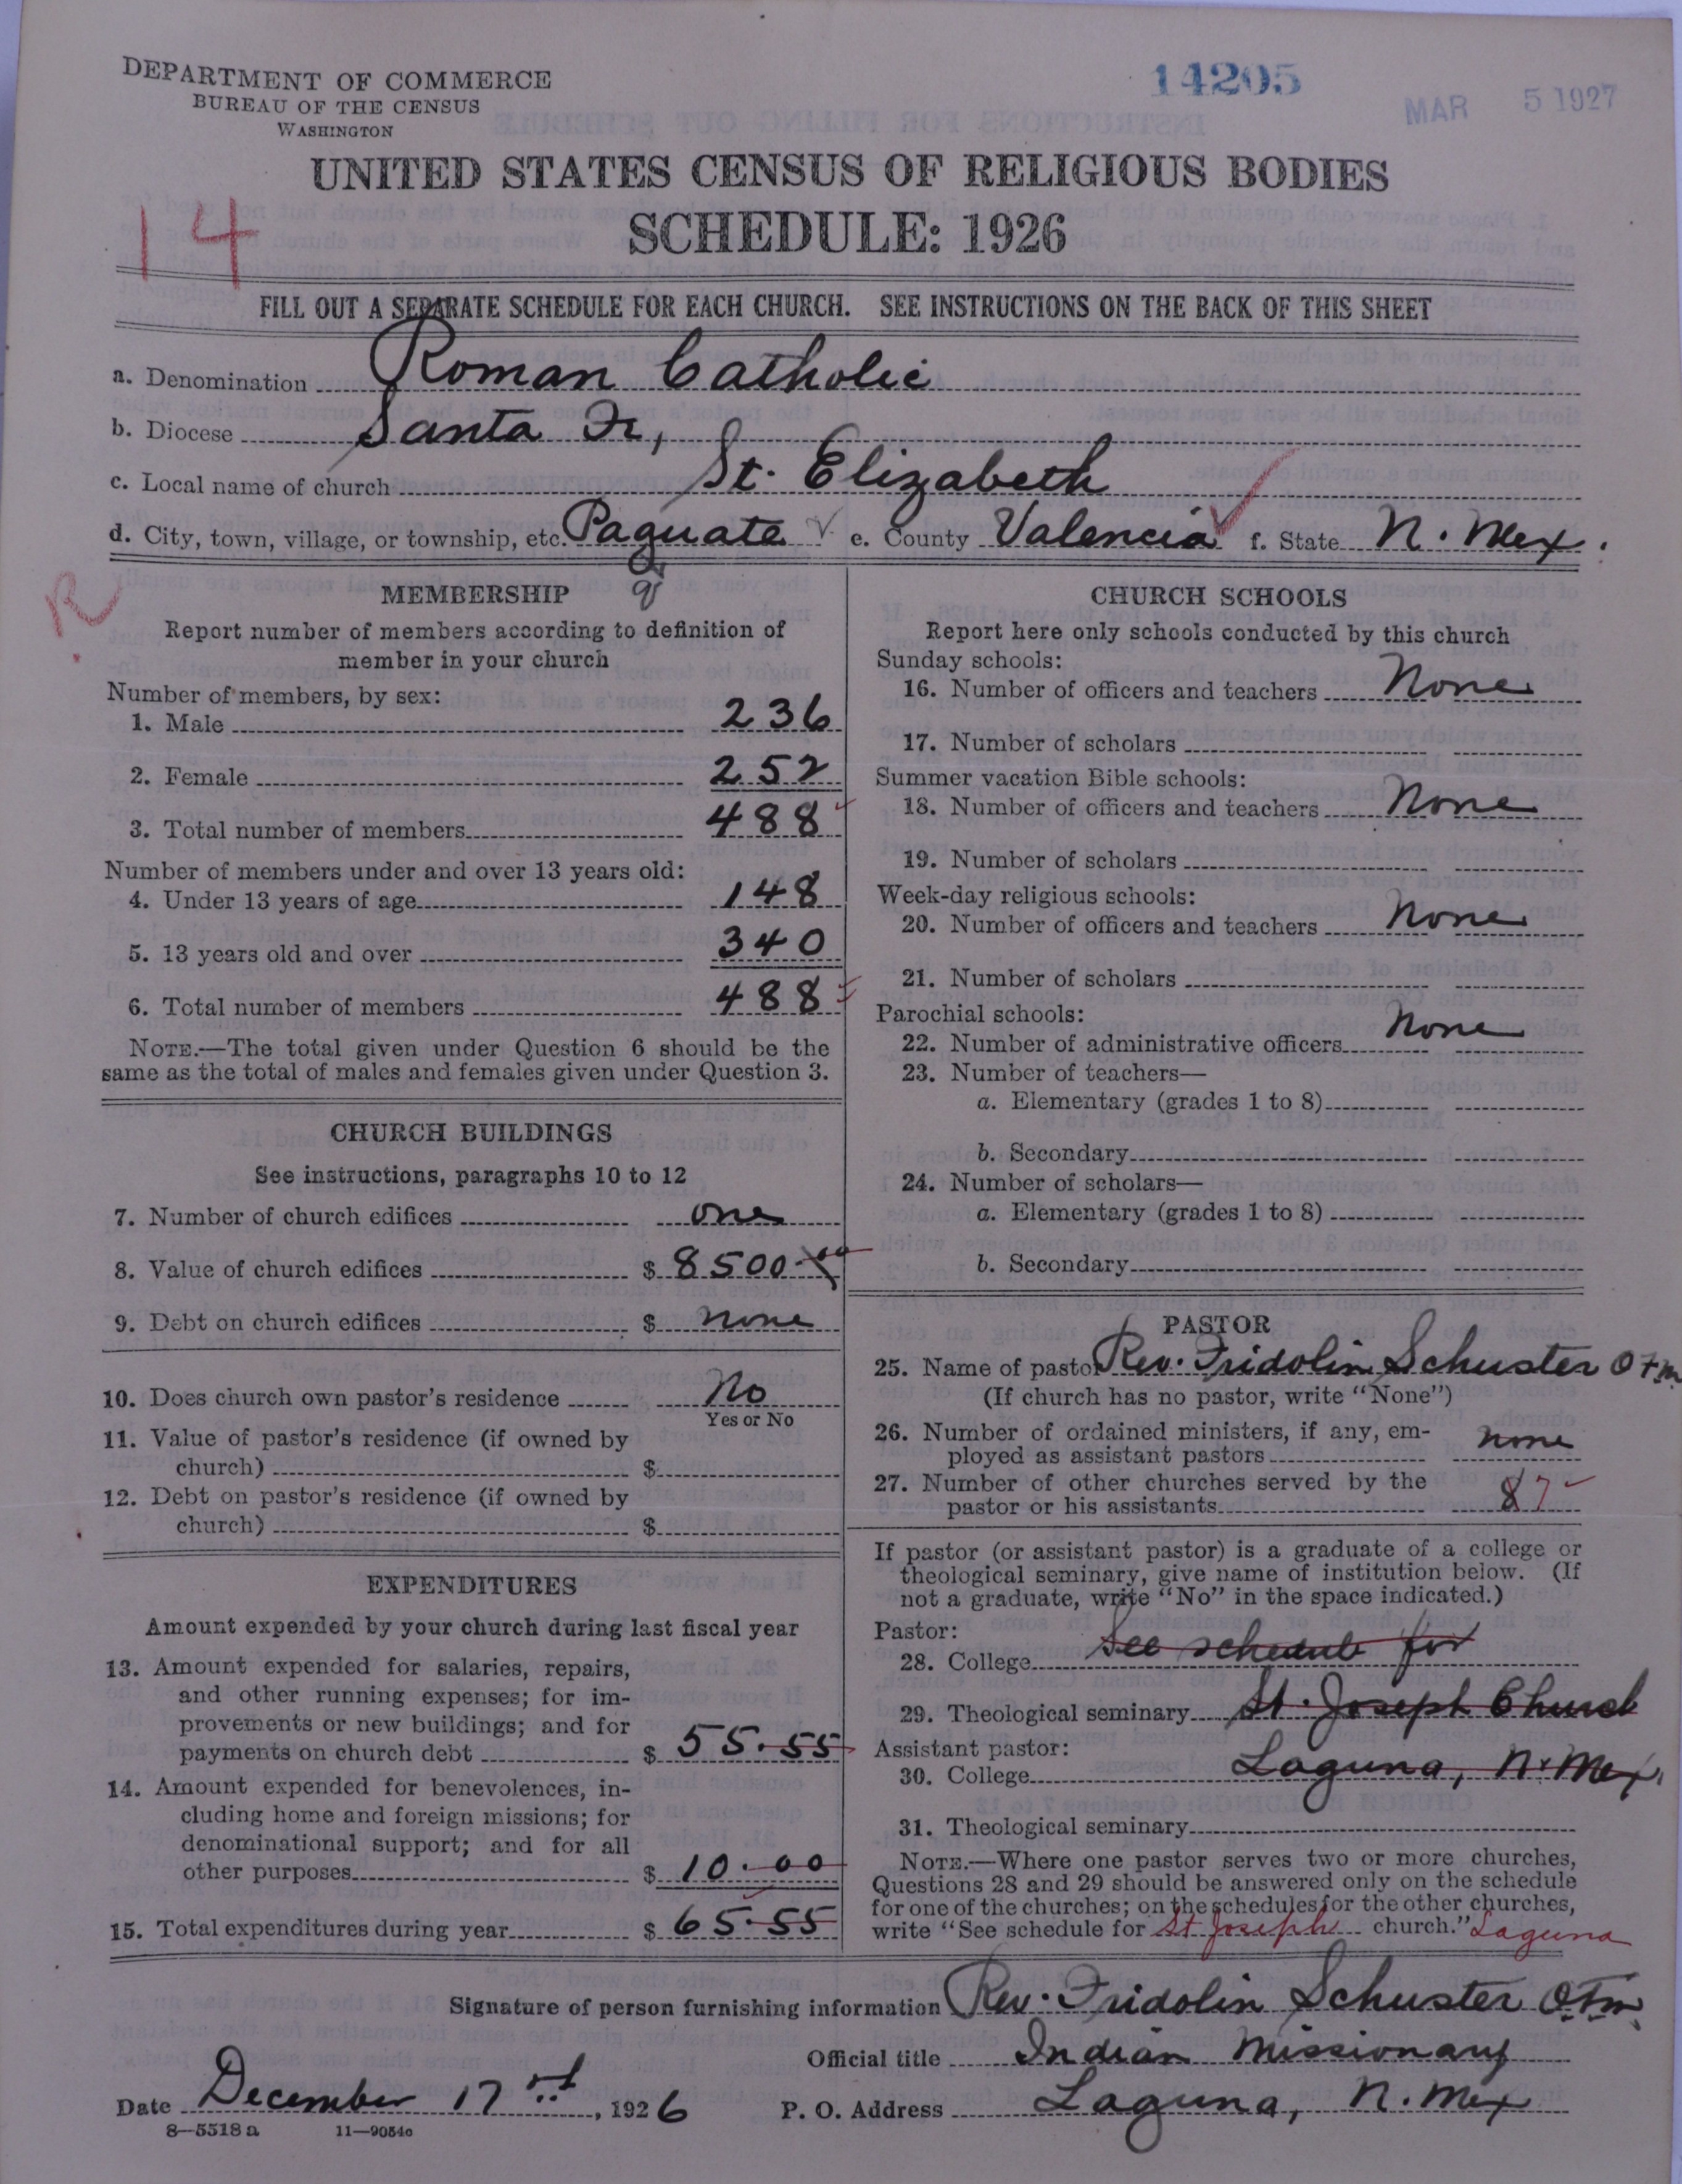 DEPARTMENT OF COMMERCE
BUREAU OF THE CENSUS
WASHINGTON
14205
MAR 5 1927
UNITED STATES CENSUS OF RELIGIOUS BODIES
SCHEDULE: 1926
14
FILL OUT A SEPARATE SCHEDULE FOR EACH CHURCH. SEE INSTRUCTIONS ON THE BACK OF THIS SHEET
a. Denomination Roman Catholic
b. Diocese Santa Fe,
c. Local name of church St. Elizabeth
d. City, town, village, or township, etc. Paguate e. County Valencia f. State N. Mex.
R
MEMBERSHIP
Report number of members according to definition of
member in your church
Number of members, by sex:
1. Male 236
2. Female 252
3. Total number of members 488
Number of members under and over 13 years old:
4. Under 13 years of age 148
5. 13 years old and over 340
6. Total number of members 488
NOTE.—The total given under Question 6 should be the
same as the total of males and females given under Question 3.
CHURCH BUILDINGS
See instructions, paragraphs 10 to 12
7. Number of church edifices one
8. Value of church edifices $ 8500.
9. Debt on church edifices $ none
10. Does church own pastor's residence No
Yes or No
11. Value of pastor's residence (if owned by
church) $
12. Debt on pastor's residence (if owned by
church) $
EXPENDITURES
Amount expended by your church during last fiscal year
13. Amount expended for salaries, repairs,
and other running expenses; for im-
provements or new buildings; and for
payments on church debt $ 55.55
14. Amount expended for benevolences, in-
cluding home and foreign missions; for
denominational support; and for all
other purposes $ 10.00
15. Total expenditures during year $ 65.55
CHURCH SCHOOLS
Report here only schools conducted by this church
Sunday schools:
16. Number of officers and teachers None
17. Number of scholars
Summer vacation Bible schools:
18. Number of officers and teachers None
19. Number of scholars
Week-day religious schools:
20. Number of officers and teachers None
21. Number of scholars
Parochial schools:
22. Number of administrative officers None
23. Number of teachers—
a. Elementary (grades 1 to 8)
b. Secondary
24. Number of scholars—
a. Elementary (grades 1 to 8)
b. Secondary
PASTOR
25. Name of pastor Rev. Fridolin Schuster OFM
(If church has no pastor, write "None")
26. Number of ordained ministers, if any, em-
ployed as assistant pastors none
27. Number of other churches served by the
pastor or his assistants 8 7
If pastor (or assistant pastor) is a graduate of a college or
theological seminary, give name of institution below. (If
not a graduate, write "No" in the space indicated.)
Pastor:
28. College See schedule for
29. Theological seminary St. Joseph Church
Assistant pastor:
30. College Laguna, N. Mex.
31. Theological seminary
NOTE.—Where one pastor serves two or more churches,
Questions 28 and 29 should be answered only on the schedule
for one of the churches; on the schedules for the other churches,
write "See schedule for St Joseph church." Laguna
Signature of person furnishing information Rev. Fridolin Schuster O.F.M.
Official title Indian Missionary
Date December 17, 1926 P. O. Address Laguna, N. Mex
8—5518 a 11—9054c